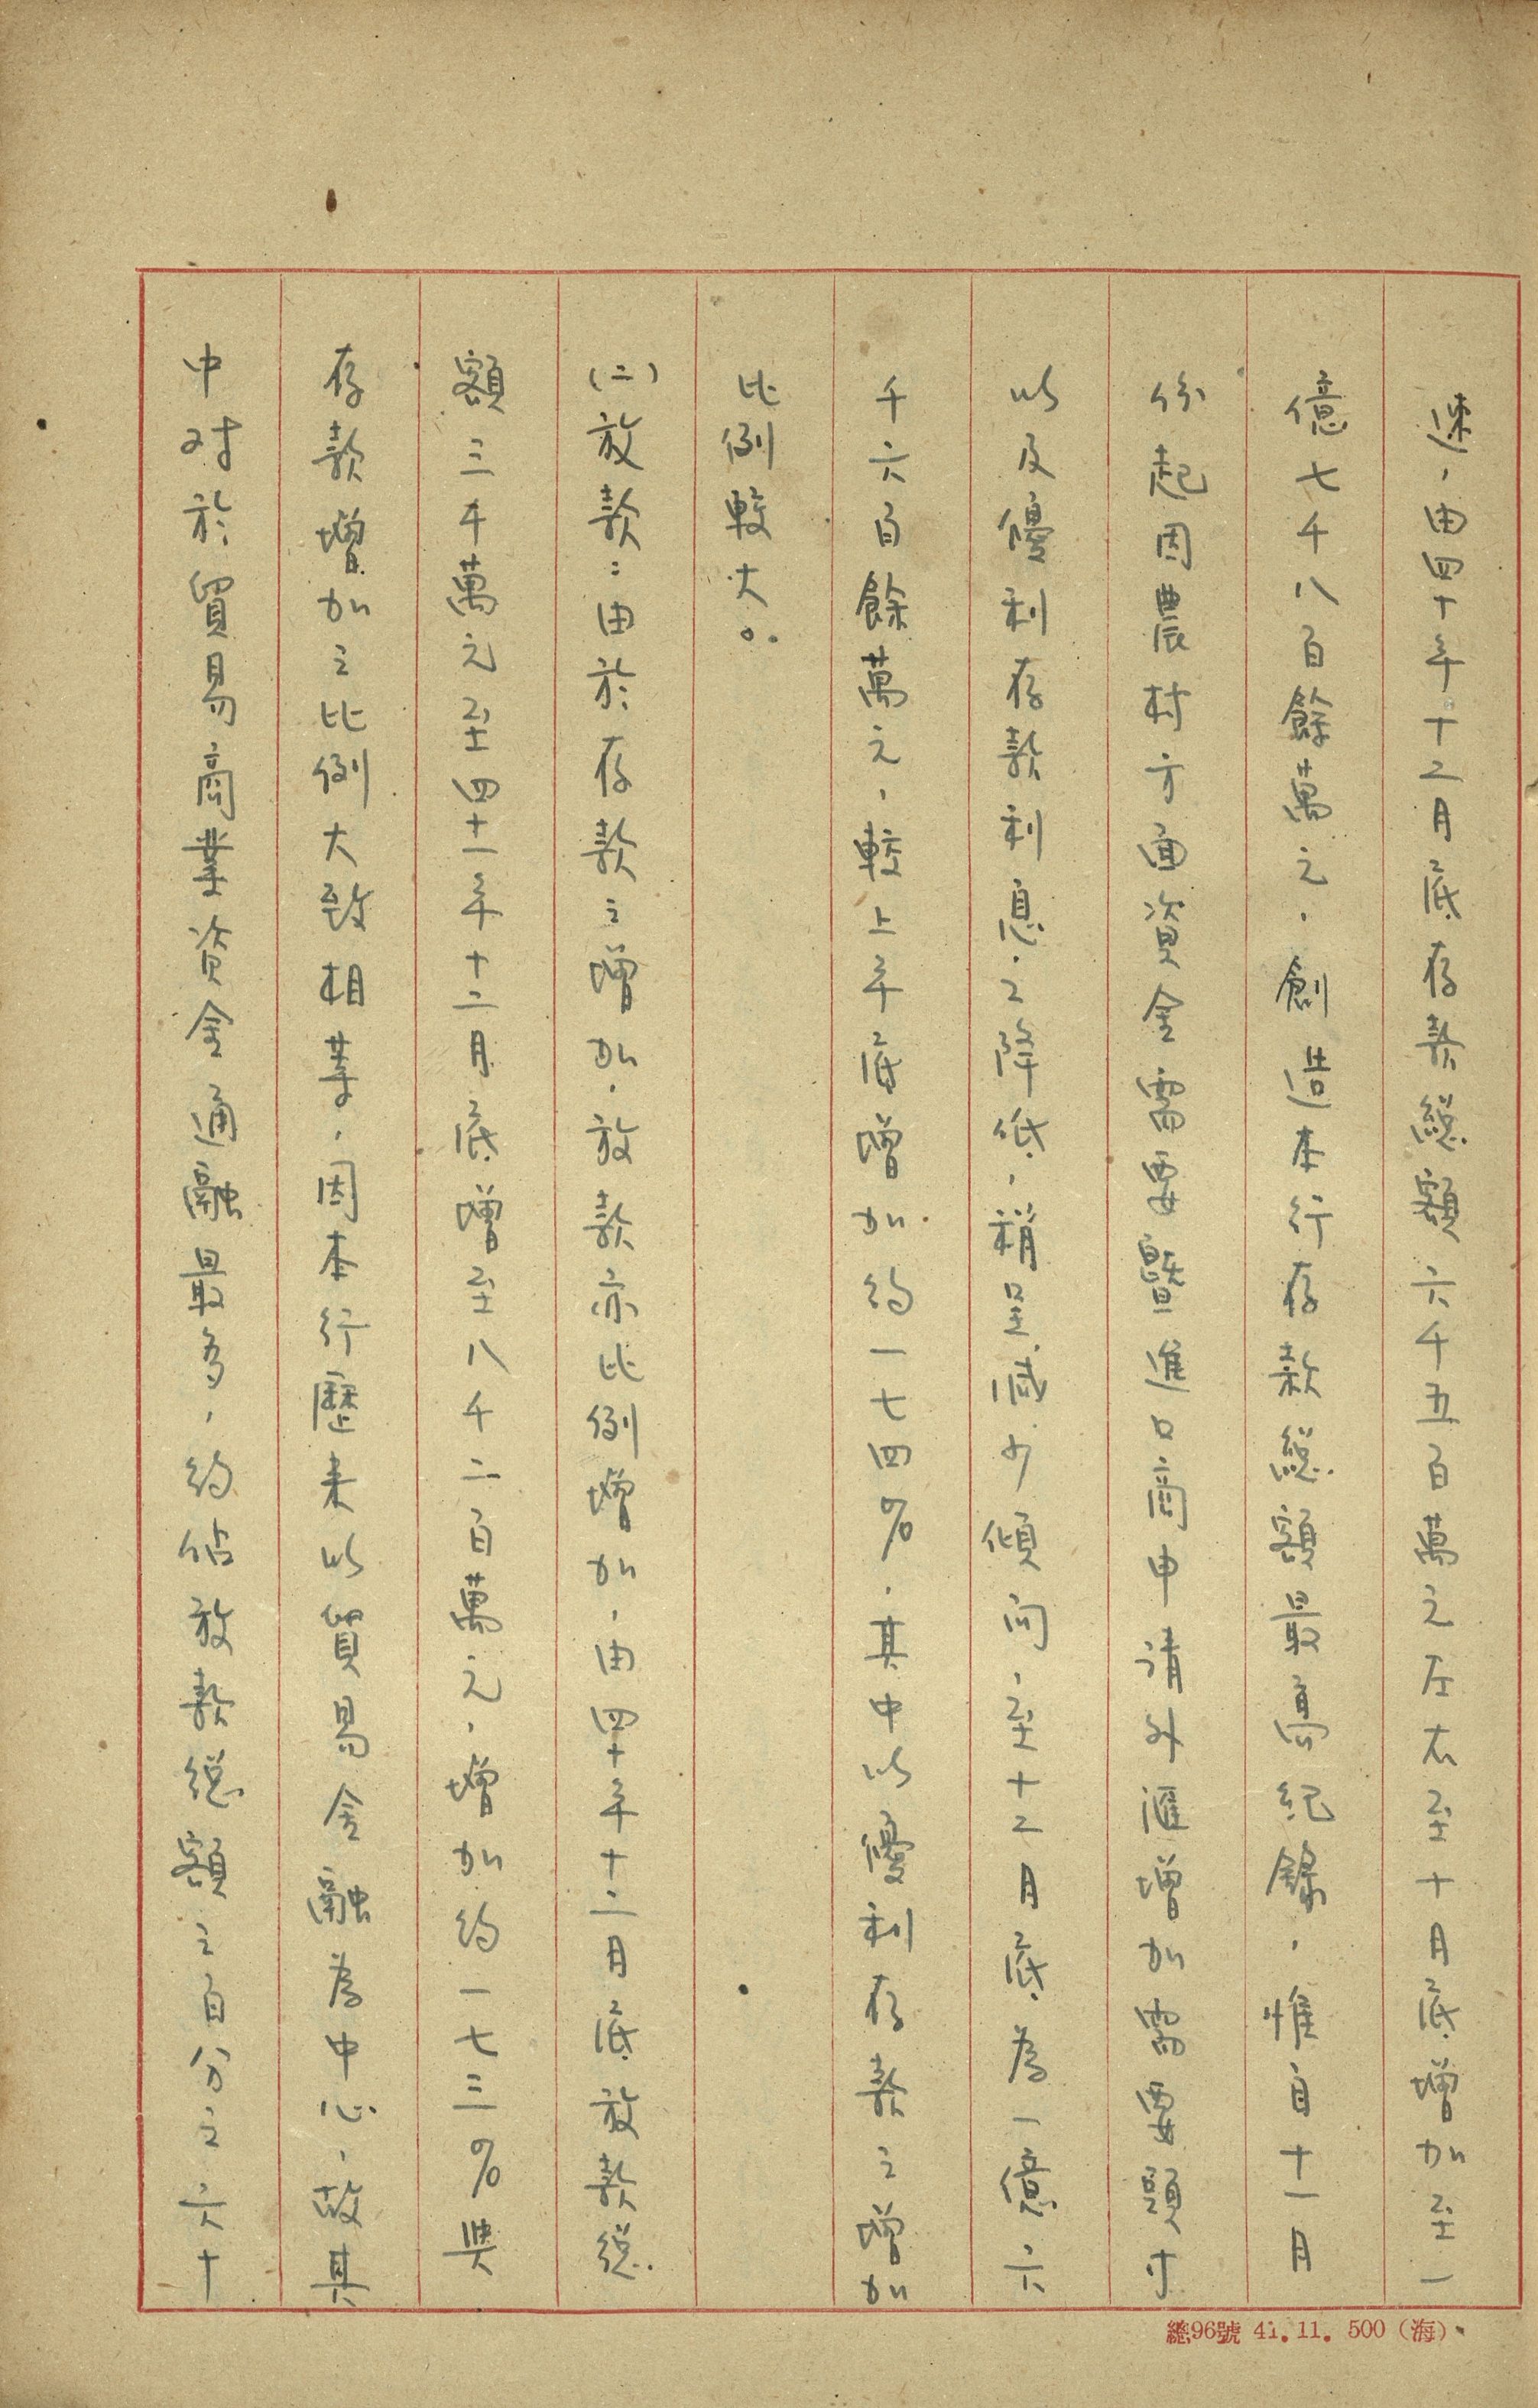 速，由四十年十二月底存款總額六千五百萬元左右至十月底增加至一
億七千八百餘萬元，創造本行存款總額最高紀錄，惟自十一月
份起因農村方面資金需要暨進口商申請外匯增加需要頭寸
以及優利存款利息之降低，稍呈减少傾向，至十二月底為一億六
千六百餘萬元，較上年底增加約一七四％，其中以優利存款之增加
比例較大。
(二)放款：由於存款之增加，放款亦比例增加，由四十年十二月底放款總
額三千萬元至四十一年十二月底增至八千二百萬元，增加約一七三％與
存款增加之比例大致相等，因本行歷来以貿易金融為中心，故其
中对於貿易商業資金通融最多，約佔放款總額之百分之六十
總96號 41.11. 500（海）